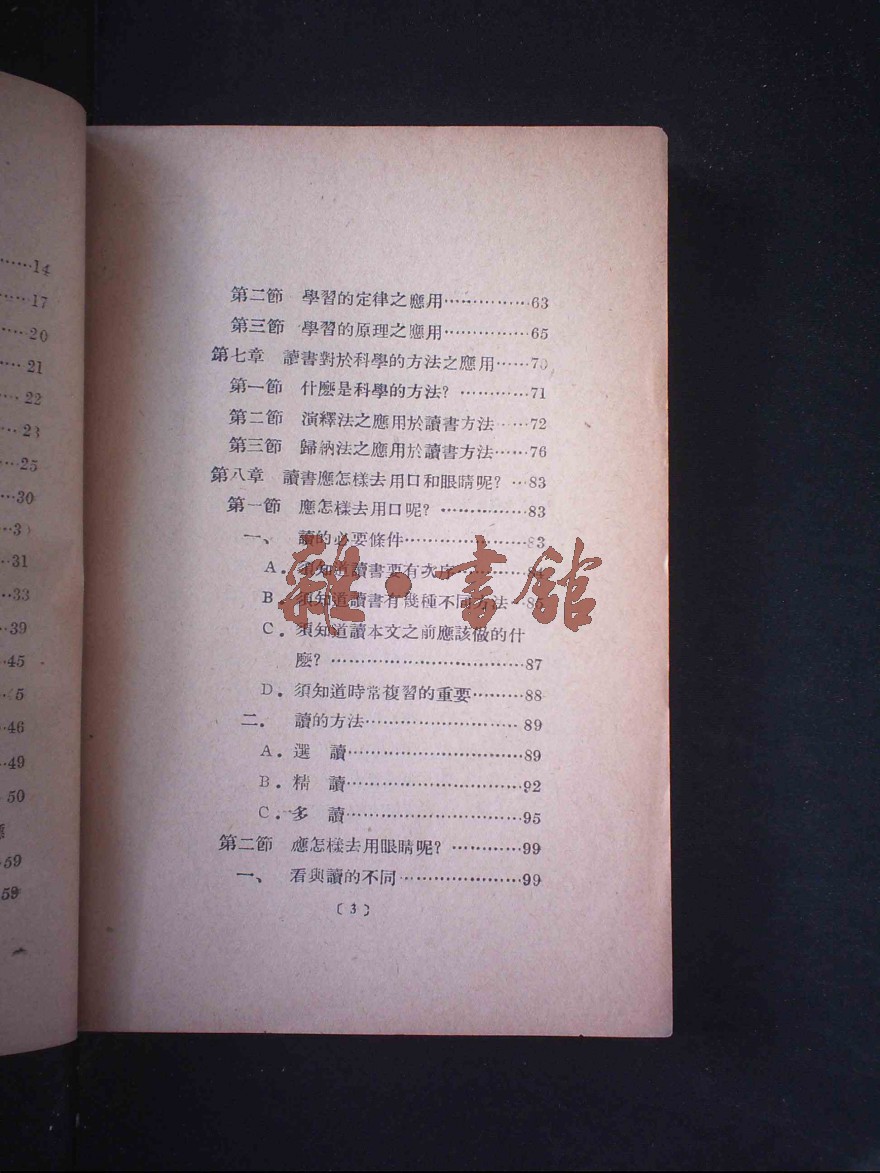 ……14
……17
……20
……21
……22
……23
……25
……30
……31
……33
……39
……45
……46
……49
……50
……59
……59
第二節 學習的定律之應用……………63
第三節 學習的原理之應用……………65
第七章 讀書對於科學的方法之應用……70
第一節 什麽是科學的方法?…………71
第二節 演釋法之應用於讀書方法……72
第三節 歸納法之應用於讀書方法……76
第八章 讀書應怎樣去用口和眼睛呢?…83
第一節 應怎樣去用口呢?……………83
一、 讀的必要條件…………………83
A. 須知道讀書要有次序…………84
B. 須知道讀書有幾種不同方法…85
C. 須知道讀本文之前應該做的什
麽?……………………………87
D. 須知道時常複習的重要………88
二. 讀的方法………………………89
A. 選 讀…………………………89
B. 精 讀…………………………92
C. 多 讀…………………………95
第二節 應怎樣去用眼睛呢?…………99
一、 看與讀的不同…………………99
〔3〕
雜·書館